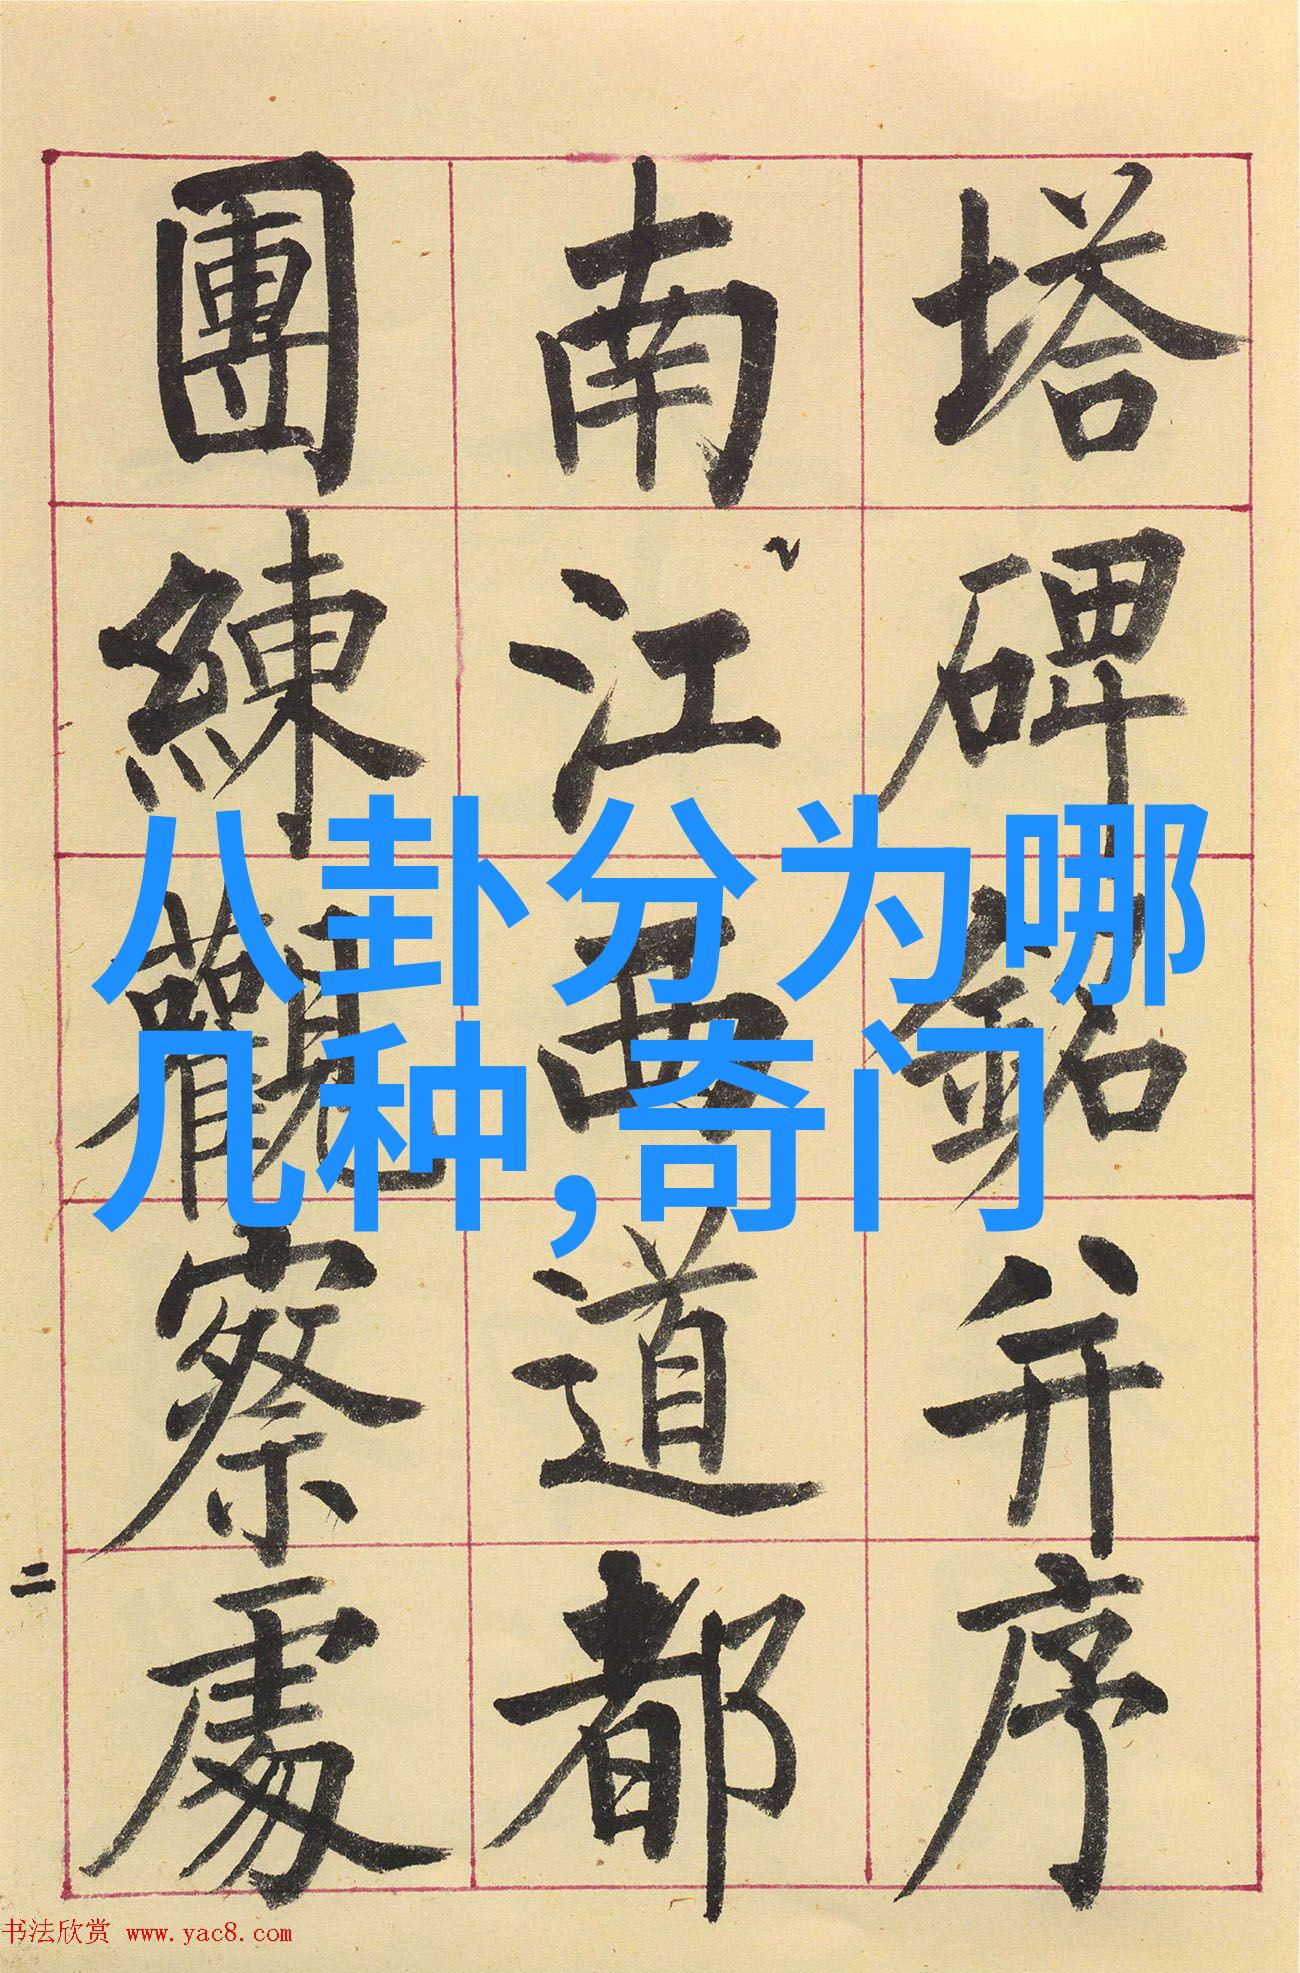 塔碑銘并序
南江西道都
團練觀察處
八卦分为哪
几种,奇门
二
书法欣赏 www.yac8.com